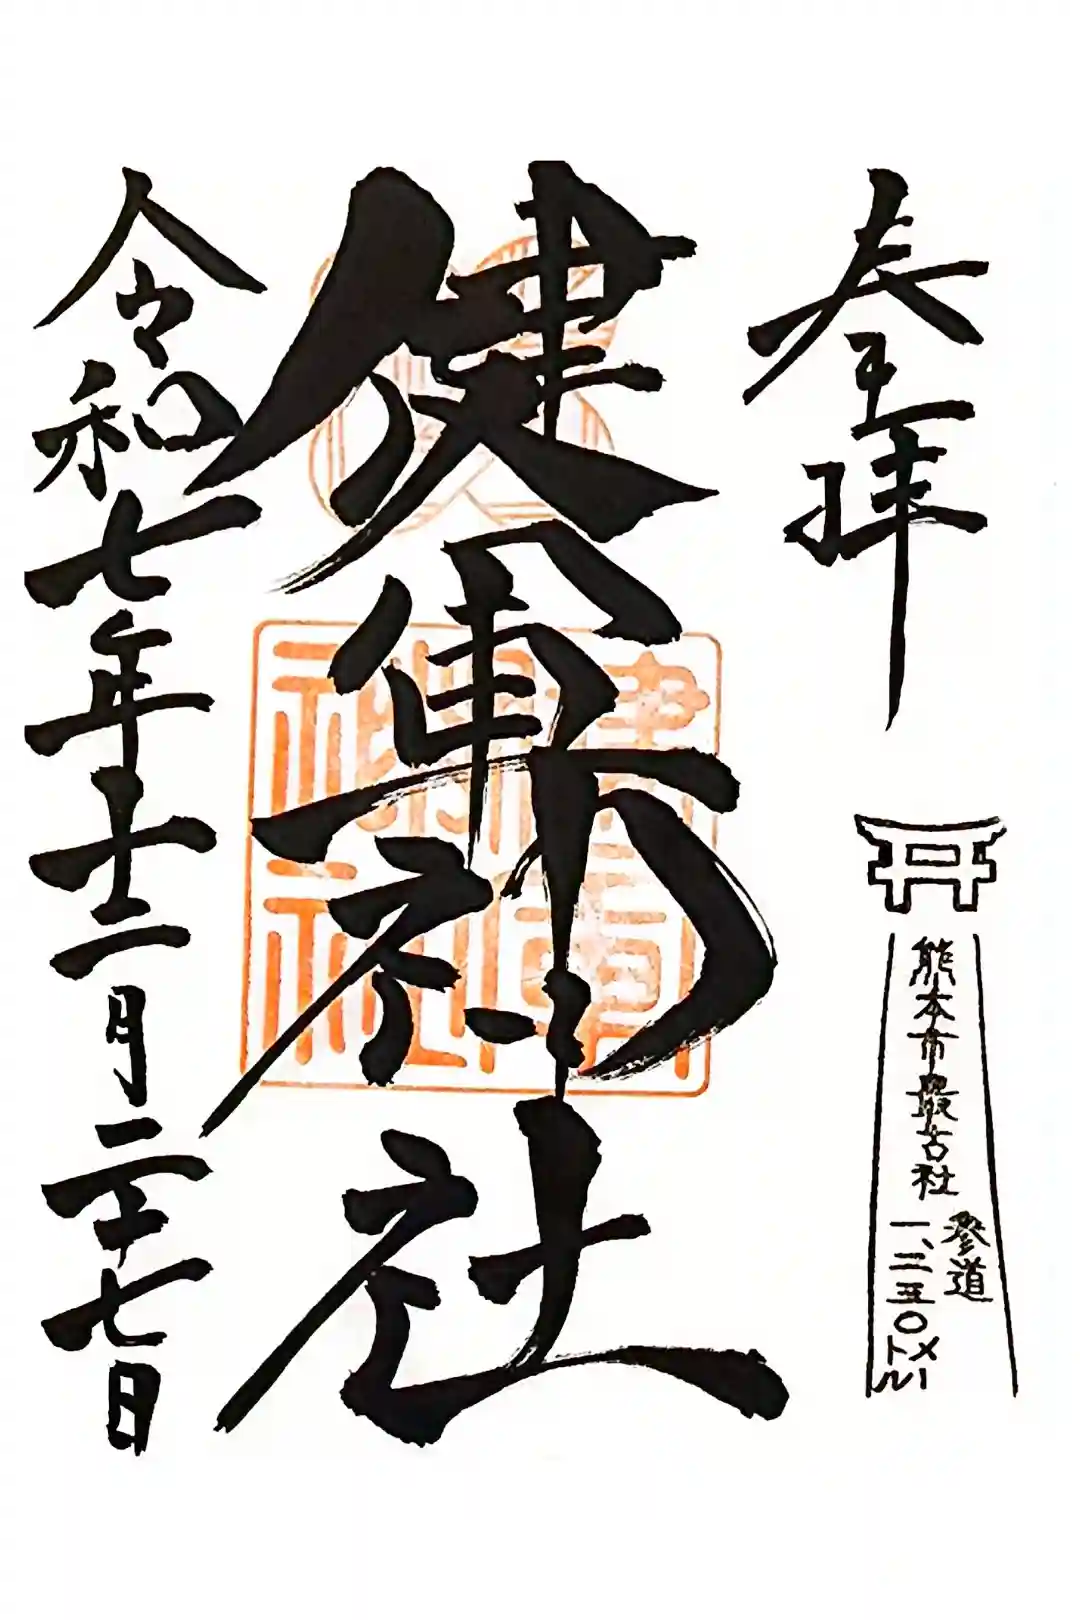 奉拝
熊本市最古社
参道
一、二五〇メートル
健軍神社
健軍神社
令和七年十二月二十七日